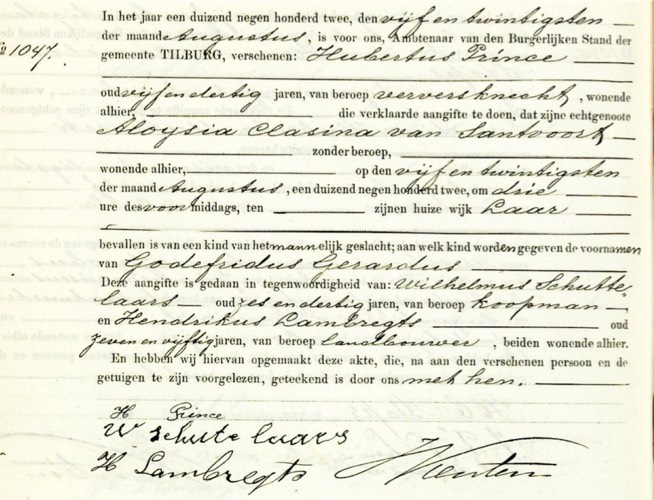 In het jaar een duizend negen honderd twee, den vijf en twintigsten
der maand Augustus, is voor ons, Ambtenaar van den Burgerlijken Stand der
No 1047. gemeente TILBURG, verschenen: Hubertus Prince
oud vijf en dertig jaren, van beroep verversknecht, wonende
alhier, die verklaarde aangifte te doen, dat zijne echtgenoote
Aloysia Clasina van Santvoort
zonder beroep,
wonende alhier, op den vijf en twintigsten
der maand Augustus, een duizend negen honderd twee, om drie
ure des voormiddags, ten zijnen huize wijk Laar
bevallen is van een kind van het mannelijk geslacht; aan welk kind worden gegeven de voornamen
van Godefridus Gerardus
Deze aangifte is gedaan in tegenwoordigheid van: Wilhelmus Schutte
laars oud zes en dertig jaren, van beroep koopman
en Hendrikus Lambregts oud
zeven en vijftig jaren, van beroep landbouwer, beiden wonende alhier.
En hebben wij hiervan opgemaakt deze akte, die, na aan den verschenen persoon en de
getuigen te zijn voorgelezen, geteekend is door ons met hen.
H Prince
W schutelaars
H Lambregts